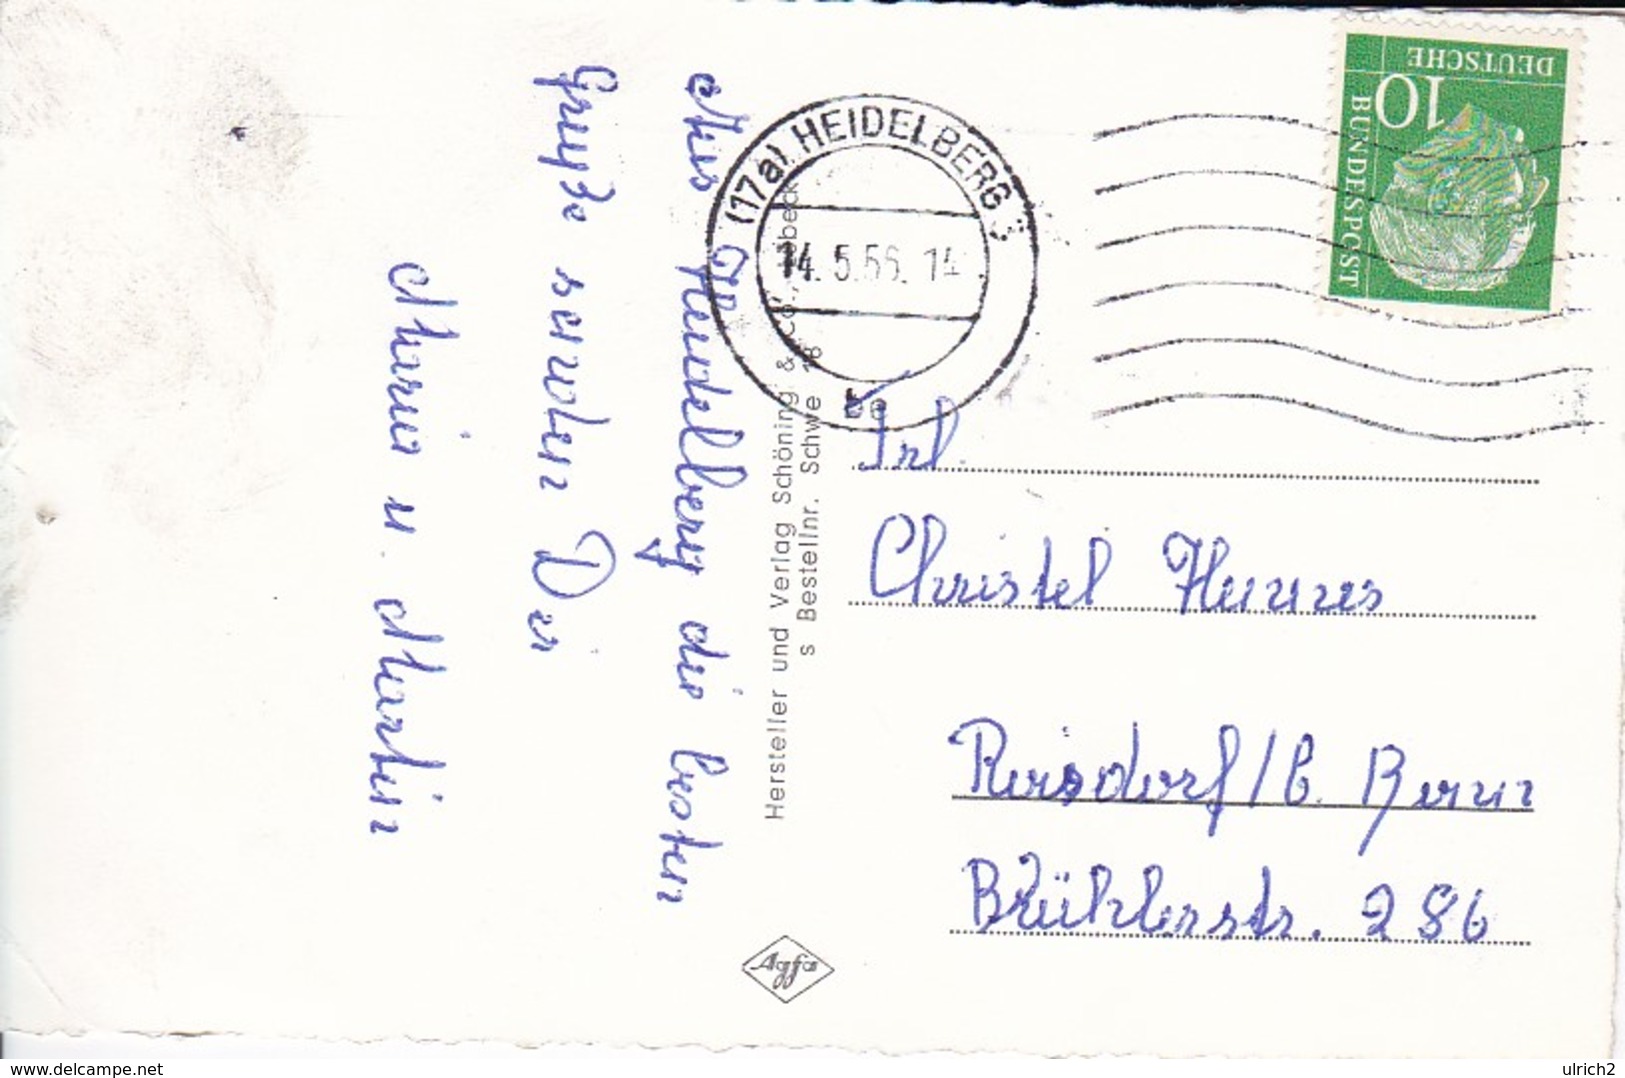 Aus Heidelberg die besten
Grüße senden Dir
Maria u. Martin
Hersteller und Verlag Schöning & Co., Lübeck
s Bestellnr. Schwe 18
Agfa
(17a) HEIDELBERG 3
14.5.56. 14
DEUTSCHE
10
BUNDESPOST
Frl.
Christel
Roisdorf/b. Bonn
Brühlerstr. 286
www.delcampe.net
ulrich2